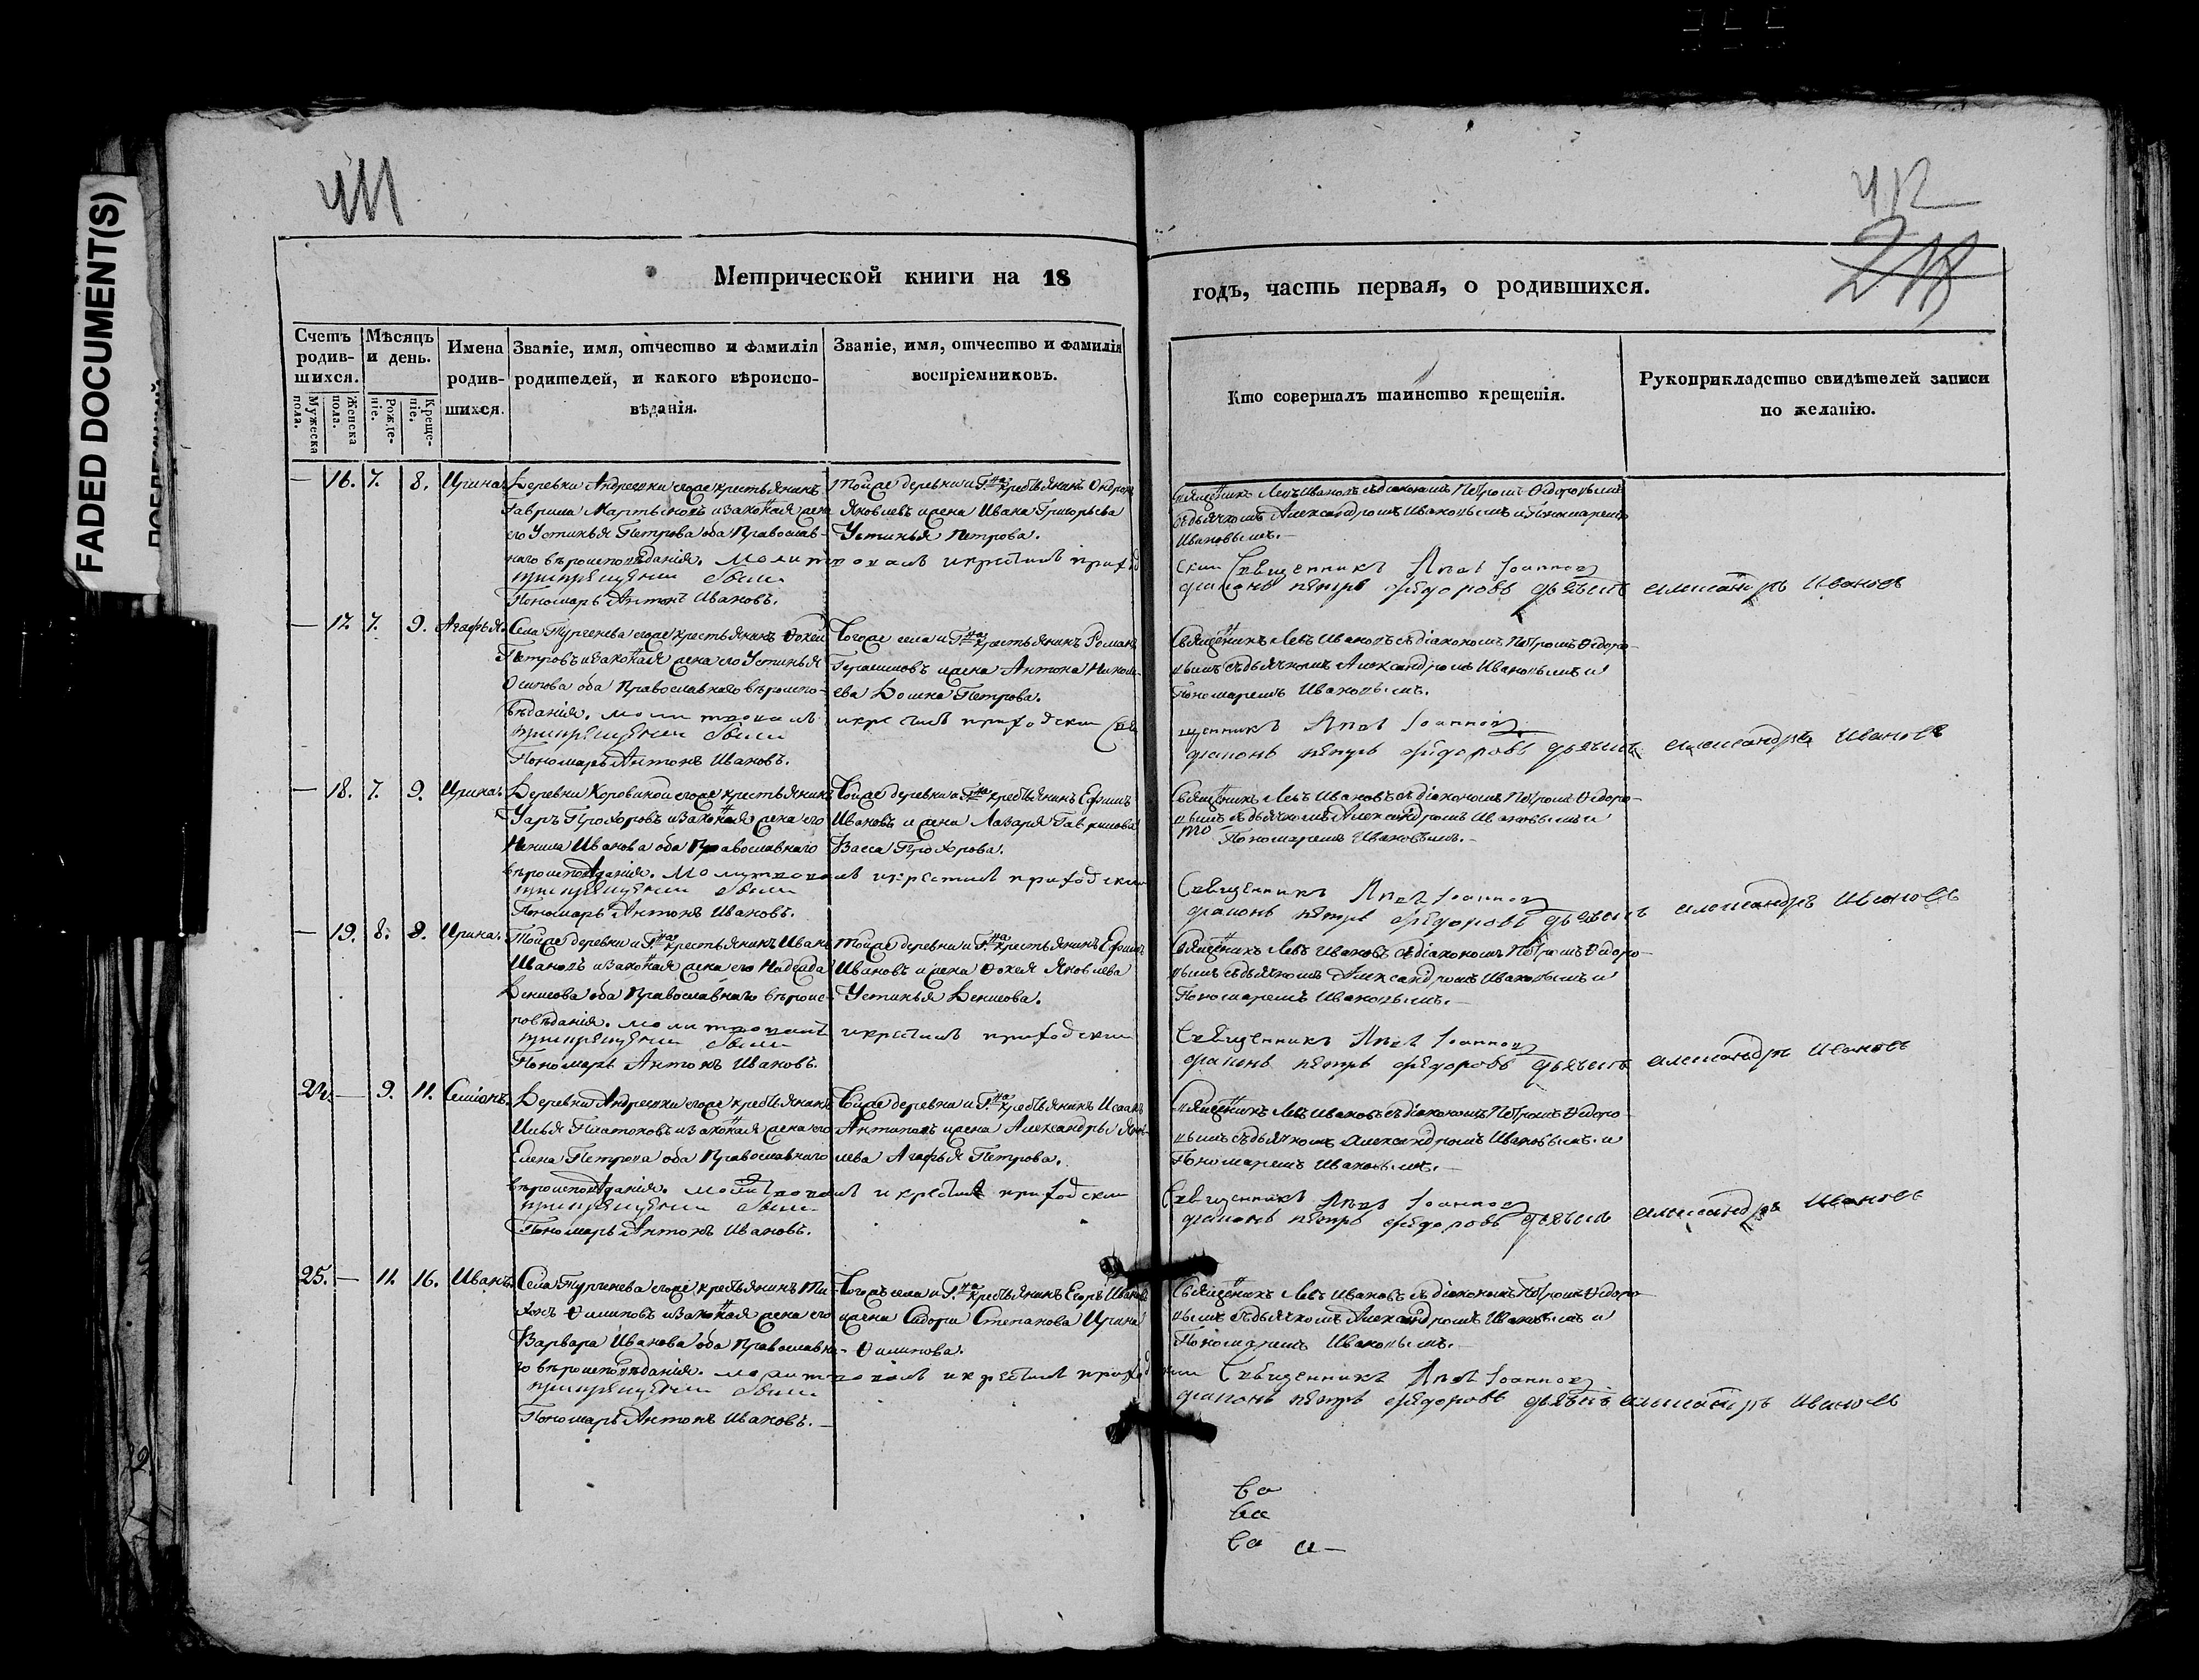 FADED DOCUMENT(S)
411
412
Метрической книги на 18
годъ, часть первая, о родившихся.
Счетъ родив-
шихся.
Мужеска пола.
Женска пола.
Мѣсяцъ и день.
Рожде-
ніе.
Креще-
ніе.
Имена родив-
шихся.
Званіе, имя, отчество и фамилія
родителей, и какого вѣроиспо-
вѣданія.
Званіе, имя, отчество и фамилія
воспріемниковъ.
Кто совершалъ таинство крещенія.
Рукоприкладство свидѣтелей записи
по желанію.
— 16. 7. 8. Ирина.
Деревни Андреевки егоже крестьянинъ
Гаврила Мартыновъ изаконая жена
его Устинья Петрова оба Православ-
наго вѣроисповѣданія. молитвовалъ
при крещении были
Пономарь Антонъ Ивановъ.
Тойже деревни и Г.на крестьянинъ
Яковлевъ ижена Ивана Григорьева
Устинья Петрова.
икрестилъ приход
Священникъ Левъ Ивановъ съдіакономъ Петромъ Ѳедоровымъ
съдьячкомъ Александромъ Ивановымъ иПономаремъ
Ивановымъ.—
ский Священникъ Левъ Іоанновъ
диаконъ петръ фёдоровъ дьячекъ александръ Ивановъ
— 17. 7. 9. Агафья.
Села Тургенева егоже крестьянинъ Фокей
Петровъ изаконая жена его Устинья
Осипова оба Православнаго вѣроиспо-
вѣданія. молитвовалъ
при крещении были
Пономарь Антонъ Ивановъ.
Тогоже села и Г.на крестьянинъ Романъ
Герасимовъ ижена Антона Никола-
ева Домна Петрова.
икрестилъ приходский Свя
Священникъ Левъ Ивановъ съдіакономъ Петромъ Ѳедоро-
вымъ съдьячкомъ Александромъ Ивановымъ и
Пономаремъ Ивановымъ.
щенникъ Левъ Іоанновъ
диаконъ петръ фёдоровъ дьячекъ александръ Ивановъ
— 18. 7. 9. Ирина.
Деревни Коровиной егоже крестьянинъ
Уаръ Прохоровъ изаконая жена его
Ненила Иванова оба Православнаго
вѣроисповѣданія. молитвовалъ
при крещении были
Пономарь Антонъ Ивановъ.
Тойже деревни и Г.на крестьянинъ Ефимъ
Ивановъ и жена Лазаря Гаврилова
Васса Прохорова.
икрестилъ приходский
Священникъ Левъ Ивановъ съдіакономъ Петромъ Ѳедоро-
вымъ съдьячкомъ Александромъ Ивановымъ и
Пономаремъ Ивановымъ.—
Священникъ Левъ Іоанновъ
диаконъ петръ фёдоровъ дьячекъ александръ Ивановъ
— 19. 8. 9. Ирина.
Тойже деревни и Г.на крестьянинъ Иванъ
Ивановъ изаконая жена его Надежда
Денисова оба Православнаго вѣроис-
повѣданія. молитвовалъ
при крещении были
Пономарь Антонъ Ивановъ.
Тойже деревни и Г.на крестьянинъ Ефимъ
Ивановъ и жена Фокея Яковлева
Устинья Денисова.
икрестилъ приходский
Священникъ Левъ Ивановъ съдіакономъ Петромъ Ѳедоро-
вымъ съдьячкомъ Александромъ Ивановымъ и
Пономаремъ Ивановымъ.—
Священникъ Левъ Іоанновъ
диаконъ петръ фёдоровъ дьячекъ александръ Ивановъ
24. — 9. 11. Симіонъ.
Деревни Андреевки егоже крестьянинъ
Илья Платоновъ изаконая жена его
Елена Петрова оба Православнаго
вѣроисповѣданія. молитвовалъ
при крещении были
Пономарь Антонъ Ивановъ.
Тойже деревни и Г.на крестьянинъ Исаакъ
Антиповъ ижена Александры Яков-
лева Агафья Петрова.
и крестилъ приходский
Священникъ Левъ Ивановъ съдіакономъ Петромъ Ѳедоро-
вымъ съдьячкомъ Александромъ Ивановымъ. и
Пономаремъ Ивановымъ.—
Священникъ Левъ Іоанновъ
диаконъ петръ фёдоровъ дьячекъ александръ Ивановъ
25. — 11. 16. Иванъ.
Села Тургенева егоже крестьянинъ Ти-
хонъ Филиповъ изаконая жена его
Варвара Иванова оба Православна-
го вѣроисповѣданія. молитвовалъ
при крещении были
Пономарь Антонъ Ивановъ.—
Тогожъ села и Г.на крестьянинъ Егоръ Ивановъ
ижена Сидора Степанова Ирина
Филипова.
икрестилъ приход
Священникъ Левъ Ивановъ съдіакономъ Петромъ Ѳедоро-
вымъ съдьячкомъ Александромъ Ивановымъ и
Пономаремъ Ивановымъ.—
ский Священникъ Левъ Іоанновъ
диаконъ петръ фёдоровъ дьячекъ александръ Ивановъ